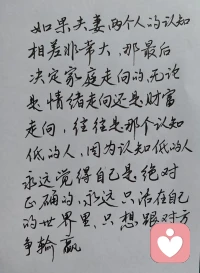 如果夫妻两个人的认知
相差非常大,那最后
决定家庭走向的,无论
是情绪走向还是财富
走向,往往是那个认知
低的人,因为认知低的人
永远觉得自己是绝对
正确的,永远只活在自己
的世界里,只想跟对方
争输赢